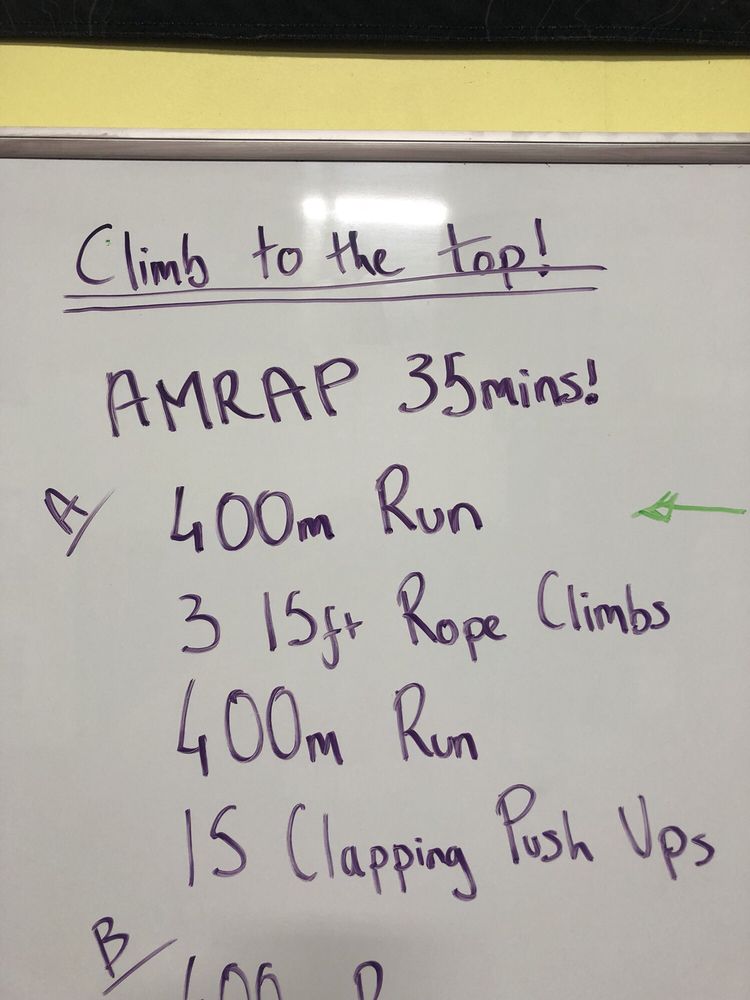 Climb to the top!
AMRAP 35mins!
A/ 400m Run
3 15ft Rope Climbs
400m Run
15 Clapping Push Ups
B/ 400